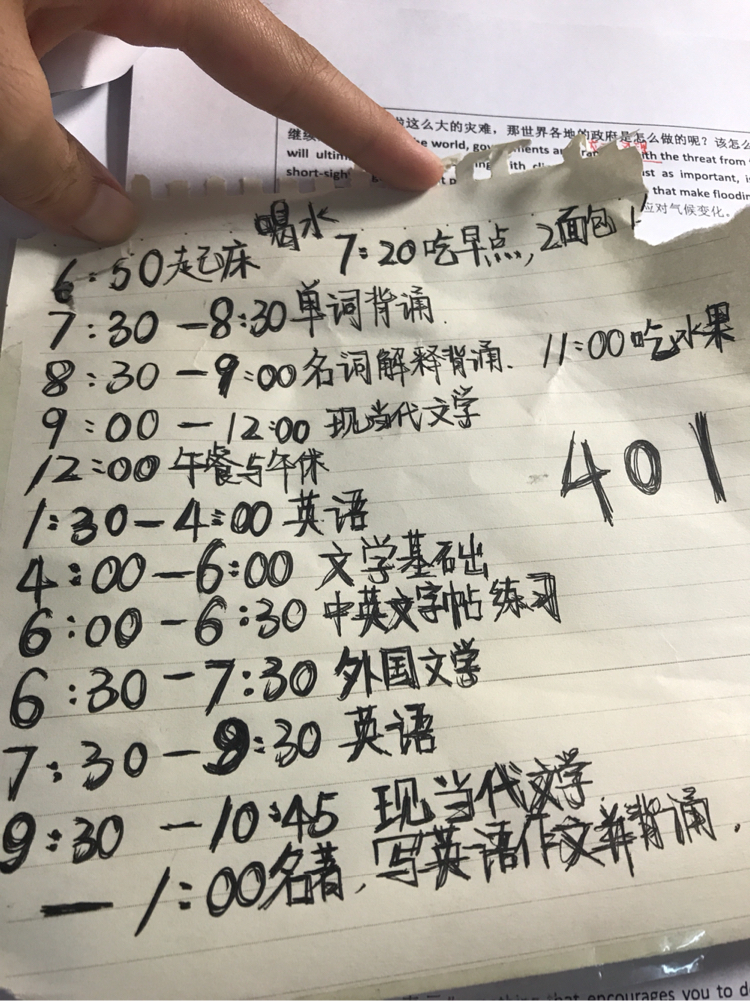 这么大的灾难，那世界各地的政府是怎么做的呢？该怎么
继续
will ultim
e world, gov
ments an
th the threat from
short-sigh
ith cli
st as important, i
that make floodin
应对气候变化.
喝水
6:50起床 7:20吃早点，2面包
7:30-8:30单词背诵.
8:30-9:00名词解释背诵. 11:00吃水果
9:00-12:00 现当代文学
12:00 午餐与午休
401
1:30-4:00 英语
4:00-6:00 文学基础
6:00-6:30 中英文字帖 练习
6:30-7:30 外国文学
7:30-9:30 英语
9:30-10:45 现当代文学
一1:00名著，写英语作文并背诵.
thing that encourages you to d